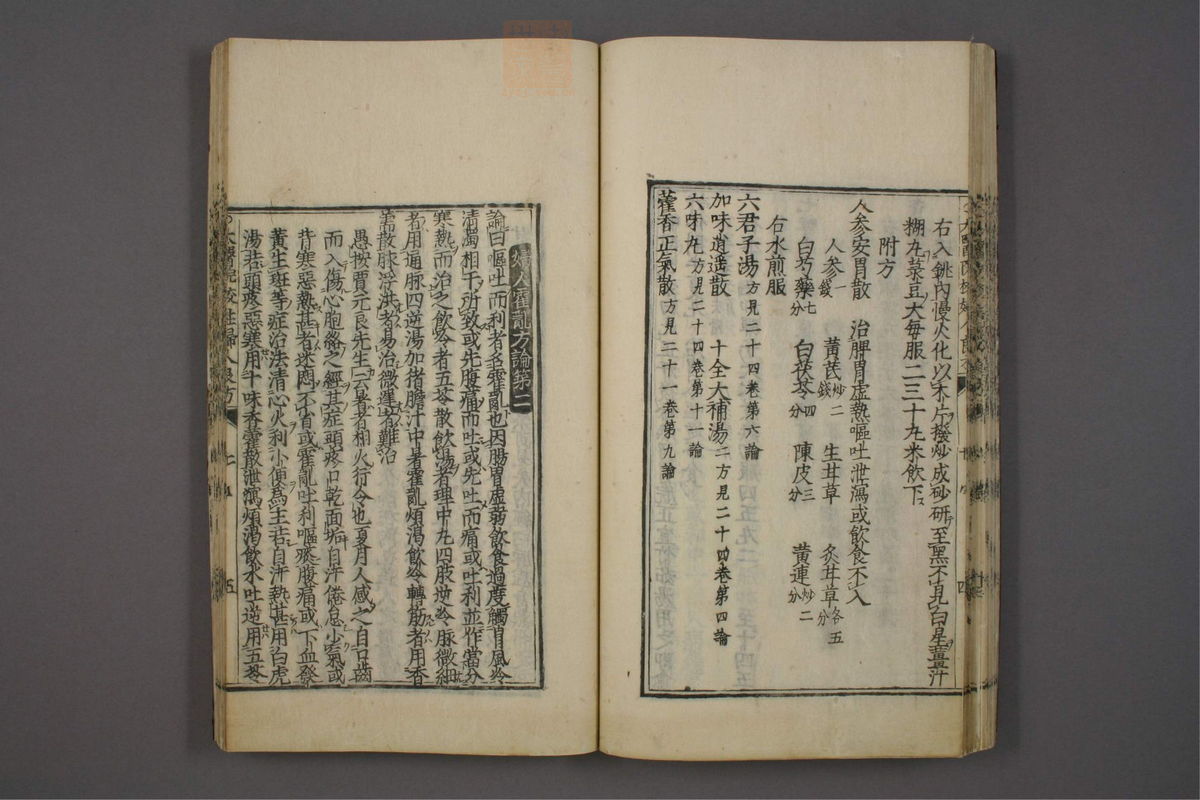 右入銚內慢火化以木片撥炒成砂研至黑不見白星薑汁
糊丸菉豆大每服二三十丸米飲下
附方
人參安胃散　治脾胃虛熱嘔吐泄瀉或飲食不入
人參一錢　黃芪炒二錢　生甘草　炙甘草各五分
白芍藥七分　白茯苓四分　陳皮三分　黃連炒二分
右水煎服
六君子湯方見二十四卷第六論
加味逍遥散　十全大補湯二方見二十四卷第四論
六味丸方見二十四卷第十一論
藿香正氣散方見二十一卷第九論
婦人霍亂方論第二
論曰嘔吐而利者名霍亂也因腸胃虛弱飲食過度觸冒風冷
淸濁相干所致或先腹痛而吐或先吐而痛或吐利並作當分
寒熱而治之飲冷者五苓散飲湯者理中丸四肢逆冷脉微細
者用通脉四逆湯加猪膽汁中暑霍亂煩渴飲冷轉筋者用香
薷散脉浮洪者易治微遲者難治
愚按賈元良先生云暑者相火行令也夏月人感之自口齒
而入傷心胞絡之經其症頭疼口乾面垢自汗倦怠少氣或
背寒惡熱甚者迷悶不省或霍亂吐利嘔痰腹痛或下血發
黃生斑等症治法清心火利小便爲主若自汗熱甚用白虎
湯若頭疼惡寒用十味香薷散泄瀉煩渴飲水吐逆用五苓
太醫院校註婦人良方